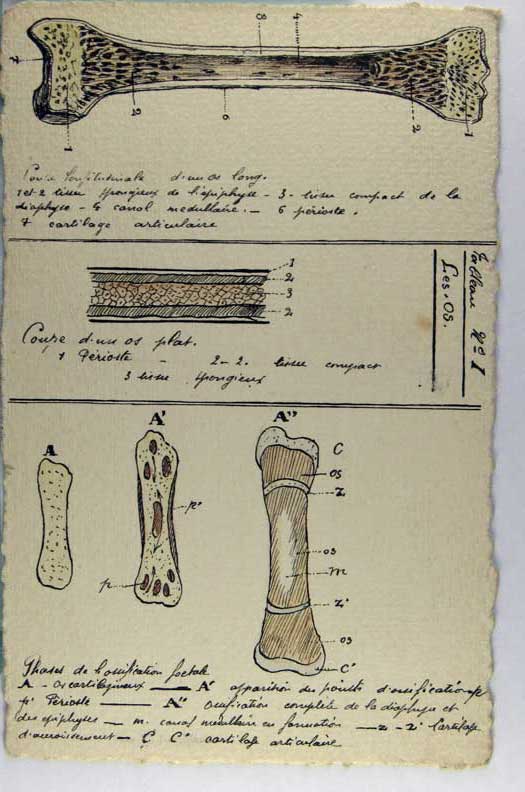 8 4
7 2 2
1 6 1
Coupe longitudinale d'un os long.
1 et 2 tissu spongieux de l'épiphyse - 3 - tissu compact de la
diaphyse - 4 canal medullaire. - 6 périoste.
7 cartilage articulaire
Tableau No 1
Les. OS.
1
2
3
2
Coupe d'un os plat.
1 Périoste - 2-2. tissu compact
3 tissu spongieux
A A' A"
C
os
z
p'
os
m
p
z'
os
C'
Phases de l'ossification foetale
A - os cartilagineux — A' apparition des points d'ossification p
p' Périoste — A" ossification complète de la diaphyse et
des épiphyses — m. canal médullaire en formation — z - z' Cartilage
d'accroissement — C C' cartilage articulaire